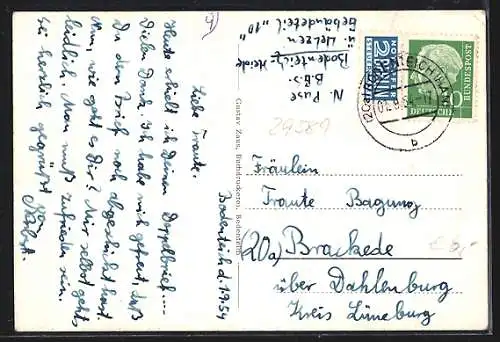 Bodenteich d. 1.9.54
Liebe Traute.
Heute erhielt ich Deinen Doppelbrief....
Vielen Dank. Ich habe mich gefreut, daß
Du den Brief noch abgeschickt hast.
Nun, wie geht es Dir? Mir selbst geht's
leidlich. Man muß zufrieden sein.
Sei herlich gegrüßt von
Gustav Zaun, Buchdruckerei, Bodenteich
N. Puse
B.G.S.
Bodenteich, Heide
ü. Uelzen
Gebäudeteil "10"
NOTOPFER
2 BERLIN
STEUERMARKE
DEUTSCHE
BUNDESPOST
10
b
29589
Fräulein
Traute Bagung
(20a) Brackede
über Dahlenburg
Kreis Lüneburg